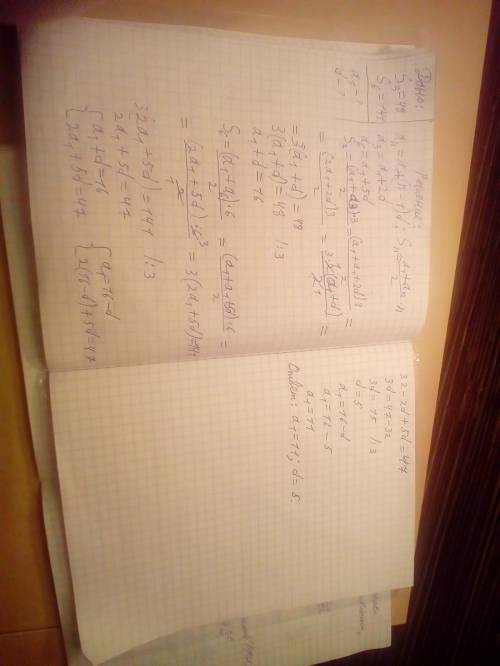 Дано:
S₃=48
S₆=141
a₁-?
d-?
Решение:
aₙ=a₁+(n-1)d; Sₙ=(a₁+aₙ)/2·n
a₃=a₁+2d
a₆=a₁+5d
S₃=(a₁+a₃)·3/2=(a₁+a₁+2d)3/2=
=(2a₁+2d)3/2=3·2(a₁+d)/2=
=3(a₁+d)=48
3(a₁+d)=48 /:3
a₁+d=16
S₆=(a₁+a₆)·6/2=(a₁+a₁+5d)·6/2=
=(2a₁+5d)·6/2=3(2a₁+5d)=141
3(2a₁+5d)=141 /:3
2a₁+5d=47
{a₁+d=16 {a₁=16-d
{2a₁+5d=47 {2(16-d)+5d=47
32-2d+5d=47
3d=47-32
3d=15 /:3
d=5
a₁=16-d
a₁=16-5
a₁=11
Ответ: a₁=11; d=5.